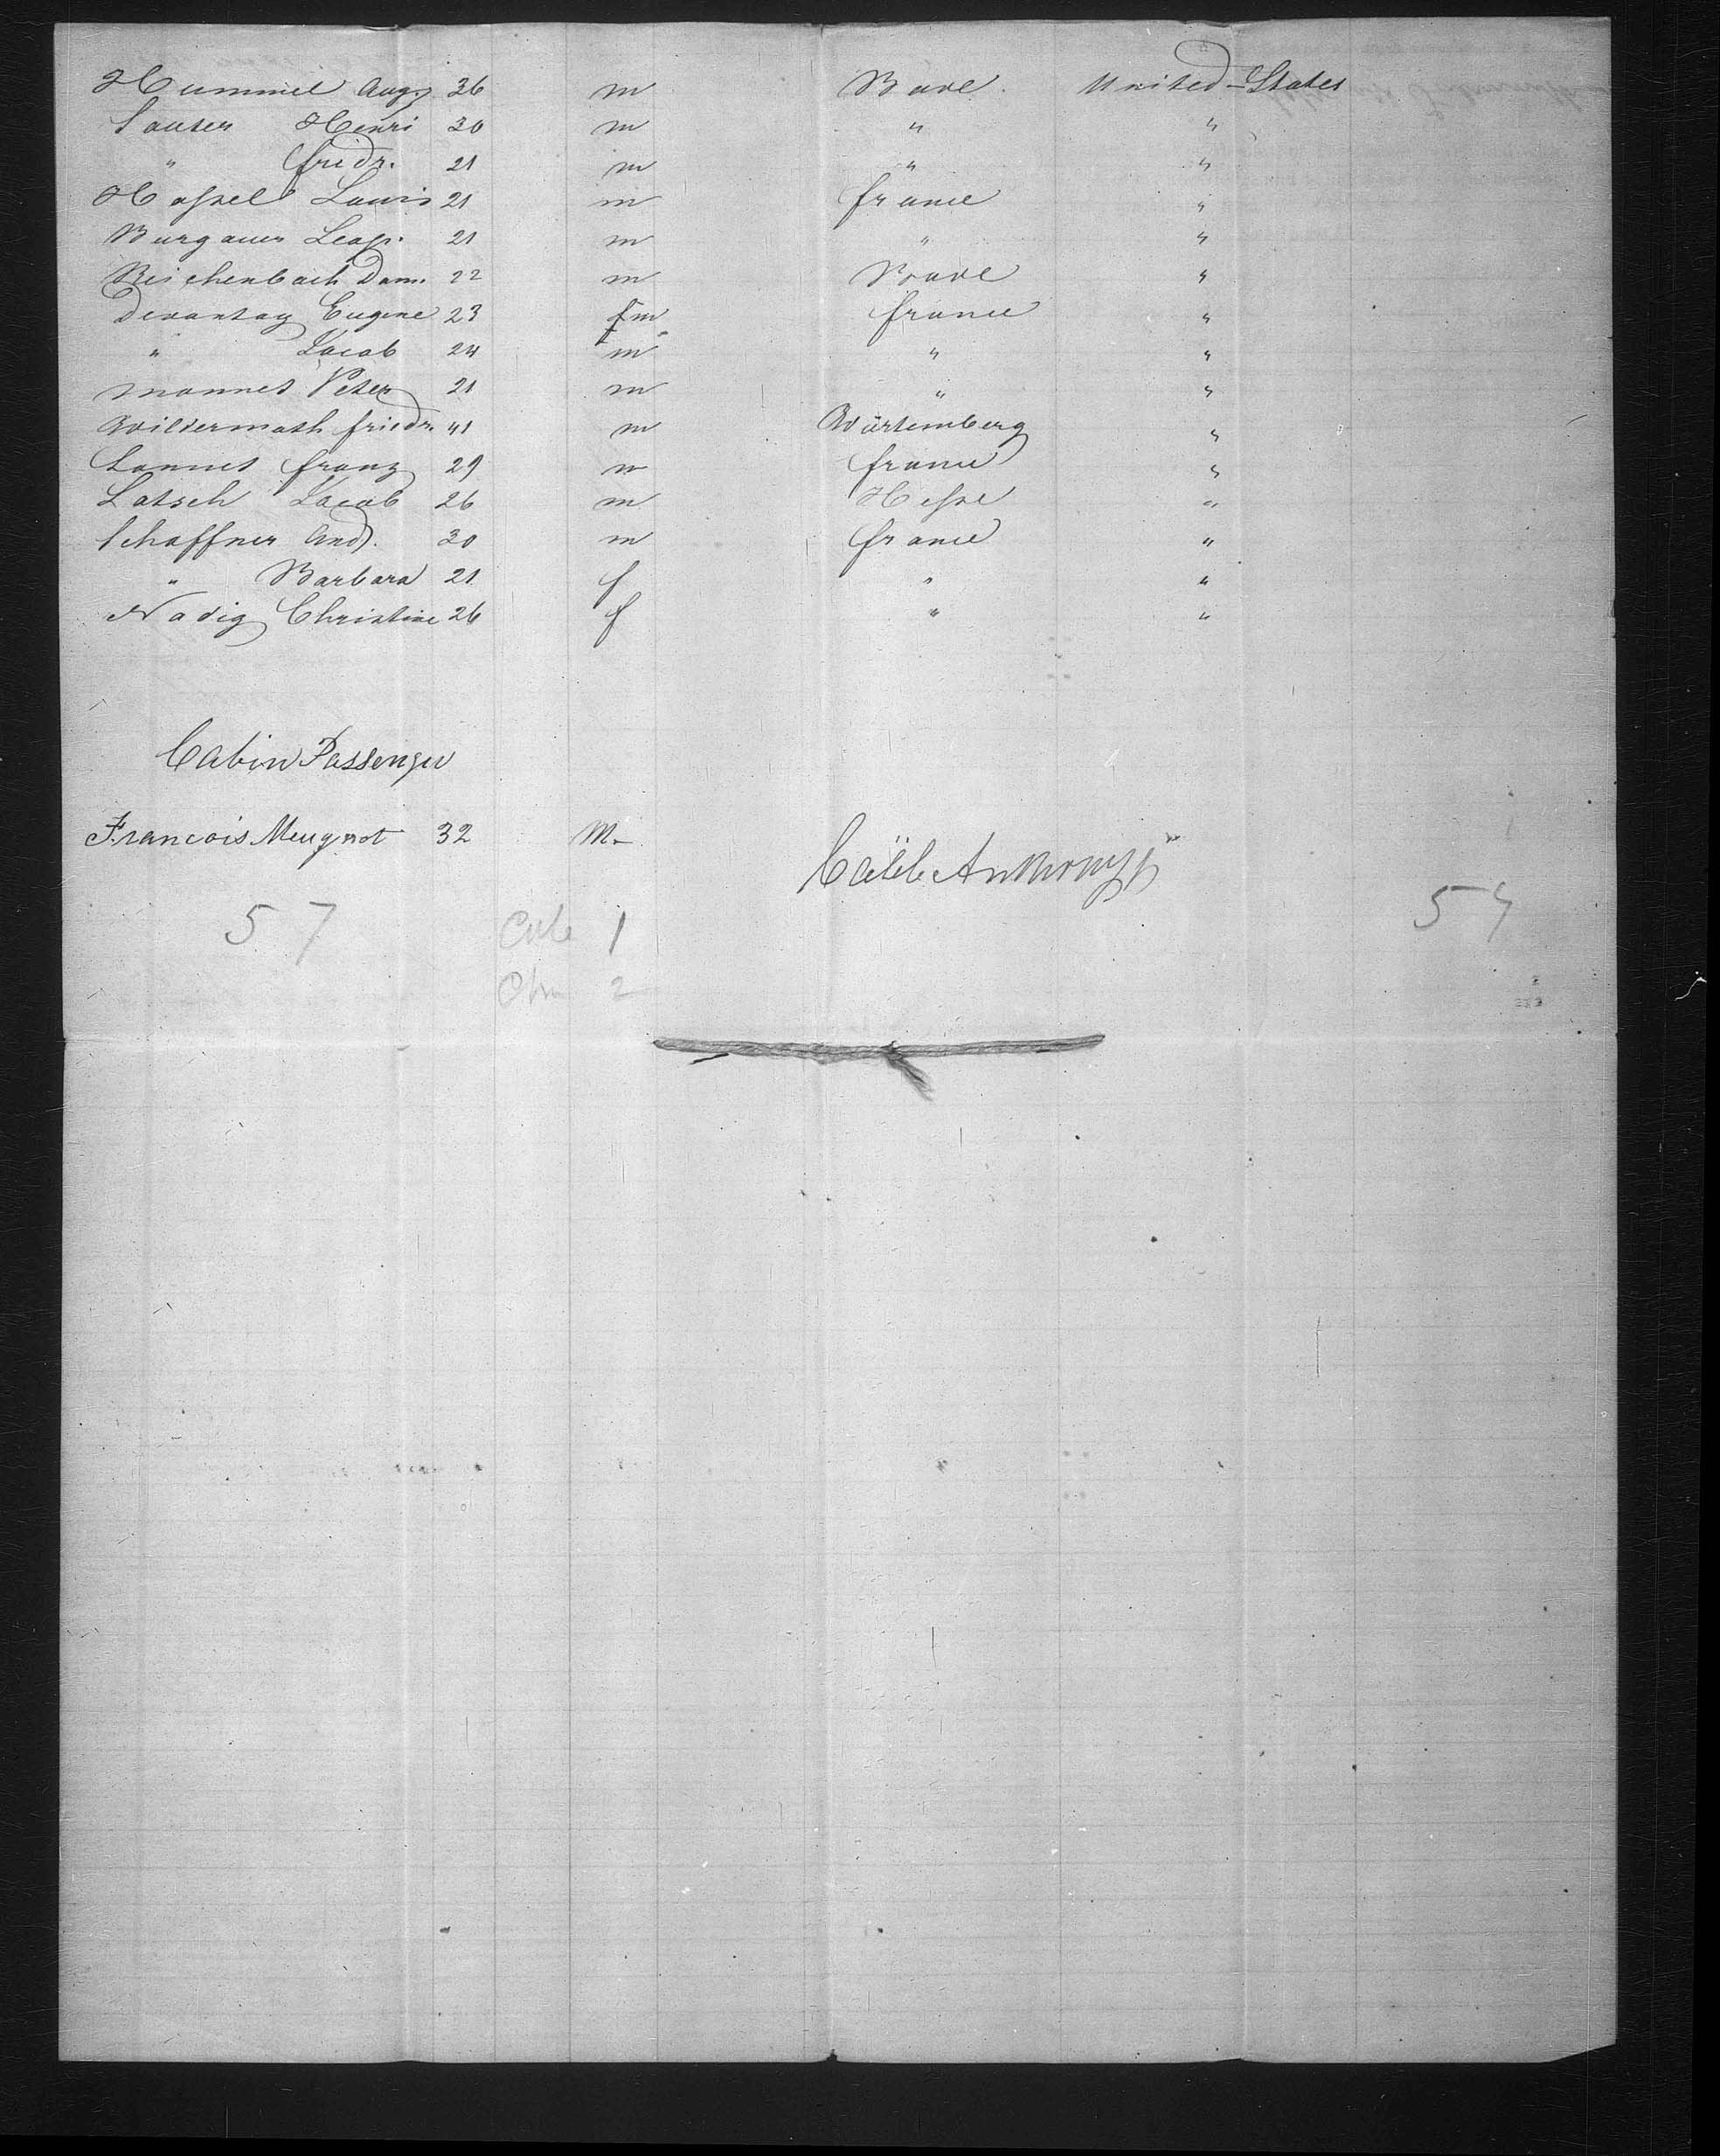 Hummel Aug. 36 m Bade. United States
Sauter Henri 30 m " "
" Fridr. 21 m " "
Hassel Louis 21 m france "
Burgauer Leop. 21 m " "
Reichenbach Dom. 22 m Bade "
Devantay Eugene 23 fm france "
" Jacob 24 m " "
Monnet Peter 21 m " "
Wildermath friedr. 41 m Würtemberg "
Lonnet franz 29 m france "
Latsch Jacob 26 m Hesse "
Schaffner And. 30 m france "
" Barbara 21 f " "
Nadig Christine 26 f " "
Cabin Passenger
Francois Meugnot 32 M.
Caleb Anthony Jr
57 1 57
2